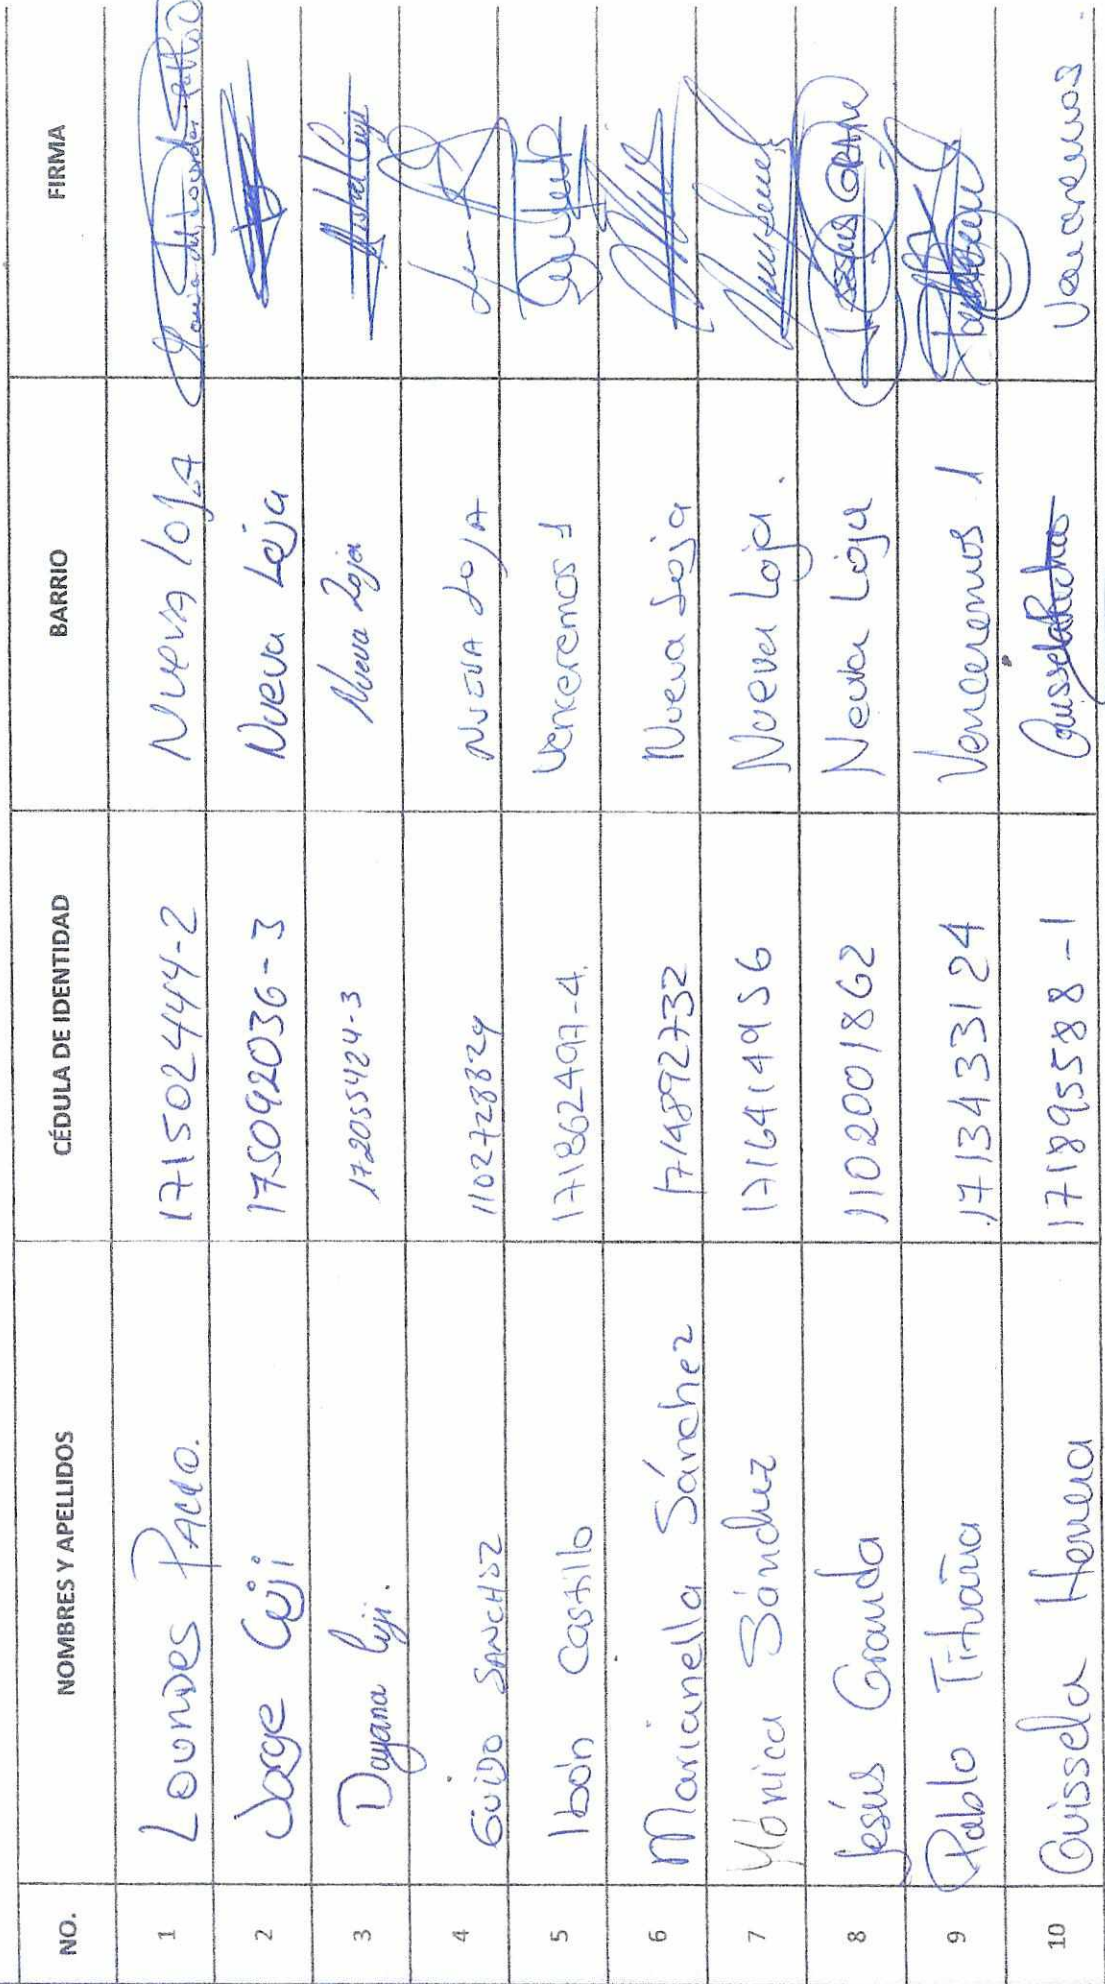 NO. NOMBRES Y APELLIDOS CÉDULA DE IDENTIDAD BARRIO FIRMA
1 LOURDES PACHO. 171502444-2 NUEVA LOJA
2 Jorge Cuji 175092036-3 Nueva Loja
3 Dayana Cuji. 172055424-3 Nueva Loja
4 GUIDO SANCHEZ NUEVA LOJA
5 Ibón Castillo 171862497-4. Venceremos 1
6 Marianella Sánchez 1714892732 Nueva Loja
7 Mónica Sánchez 1716414956 Nueva Loja.
8 Jesús Granda 1102001862 Neuva Loja JESUS GRANDA
9 Pablo Tituaña 1713433124 Venceremos 1
10 Guissela Herrera 171895588-1 Venceremos.